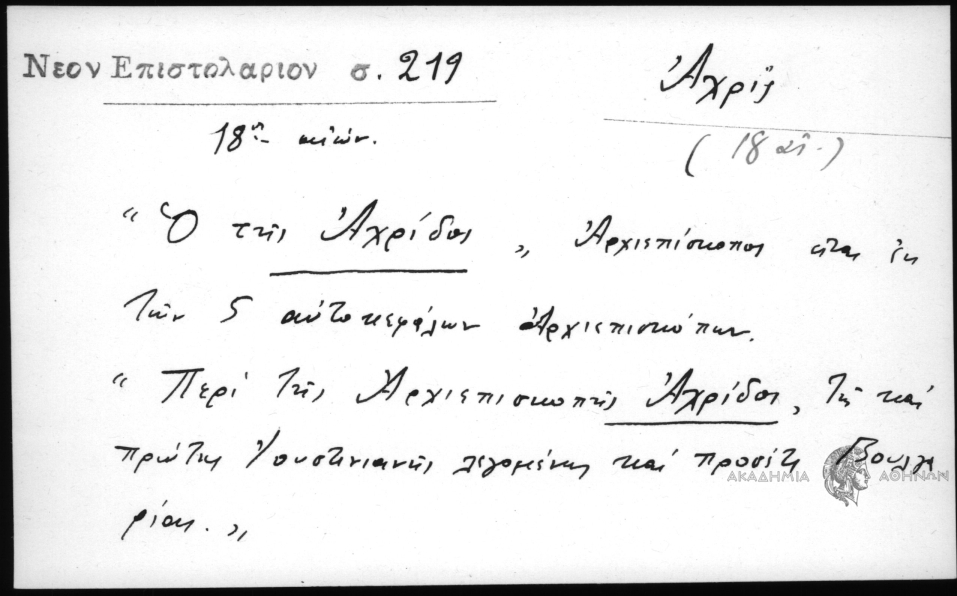 Νεον Επιστολαριον σ. 219
Ἀχρίς
18ος αἰών.
(18 αἰ.)
“Ὁ τῆς Ἀχρίδος „ Ἀρχιεπίσκοπος εἶναι ἐκ
τῶν 5 αὐτοκεφάλων Ἀρχιεπισκόπων.
“Περὶ τῆς Ἀρχιεπισκοπῆς Ἀχρίδος, τῆς καὶ
πρώτης Ἰουστινιανῆς λεγομένης καὶ προσέτι Βουλγα
ρίας. „
ΑΚΑΔΗΜΙΑ ΑΘΗΝΩΝ